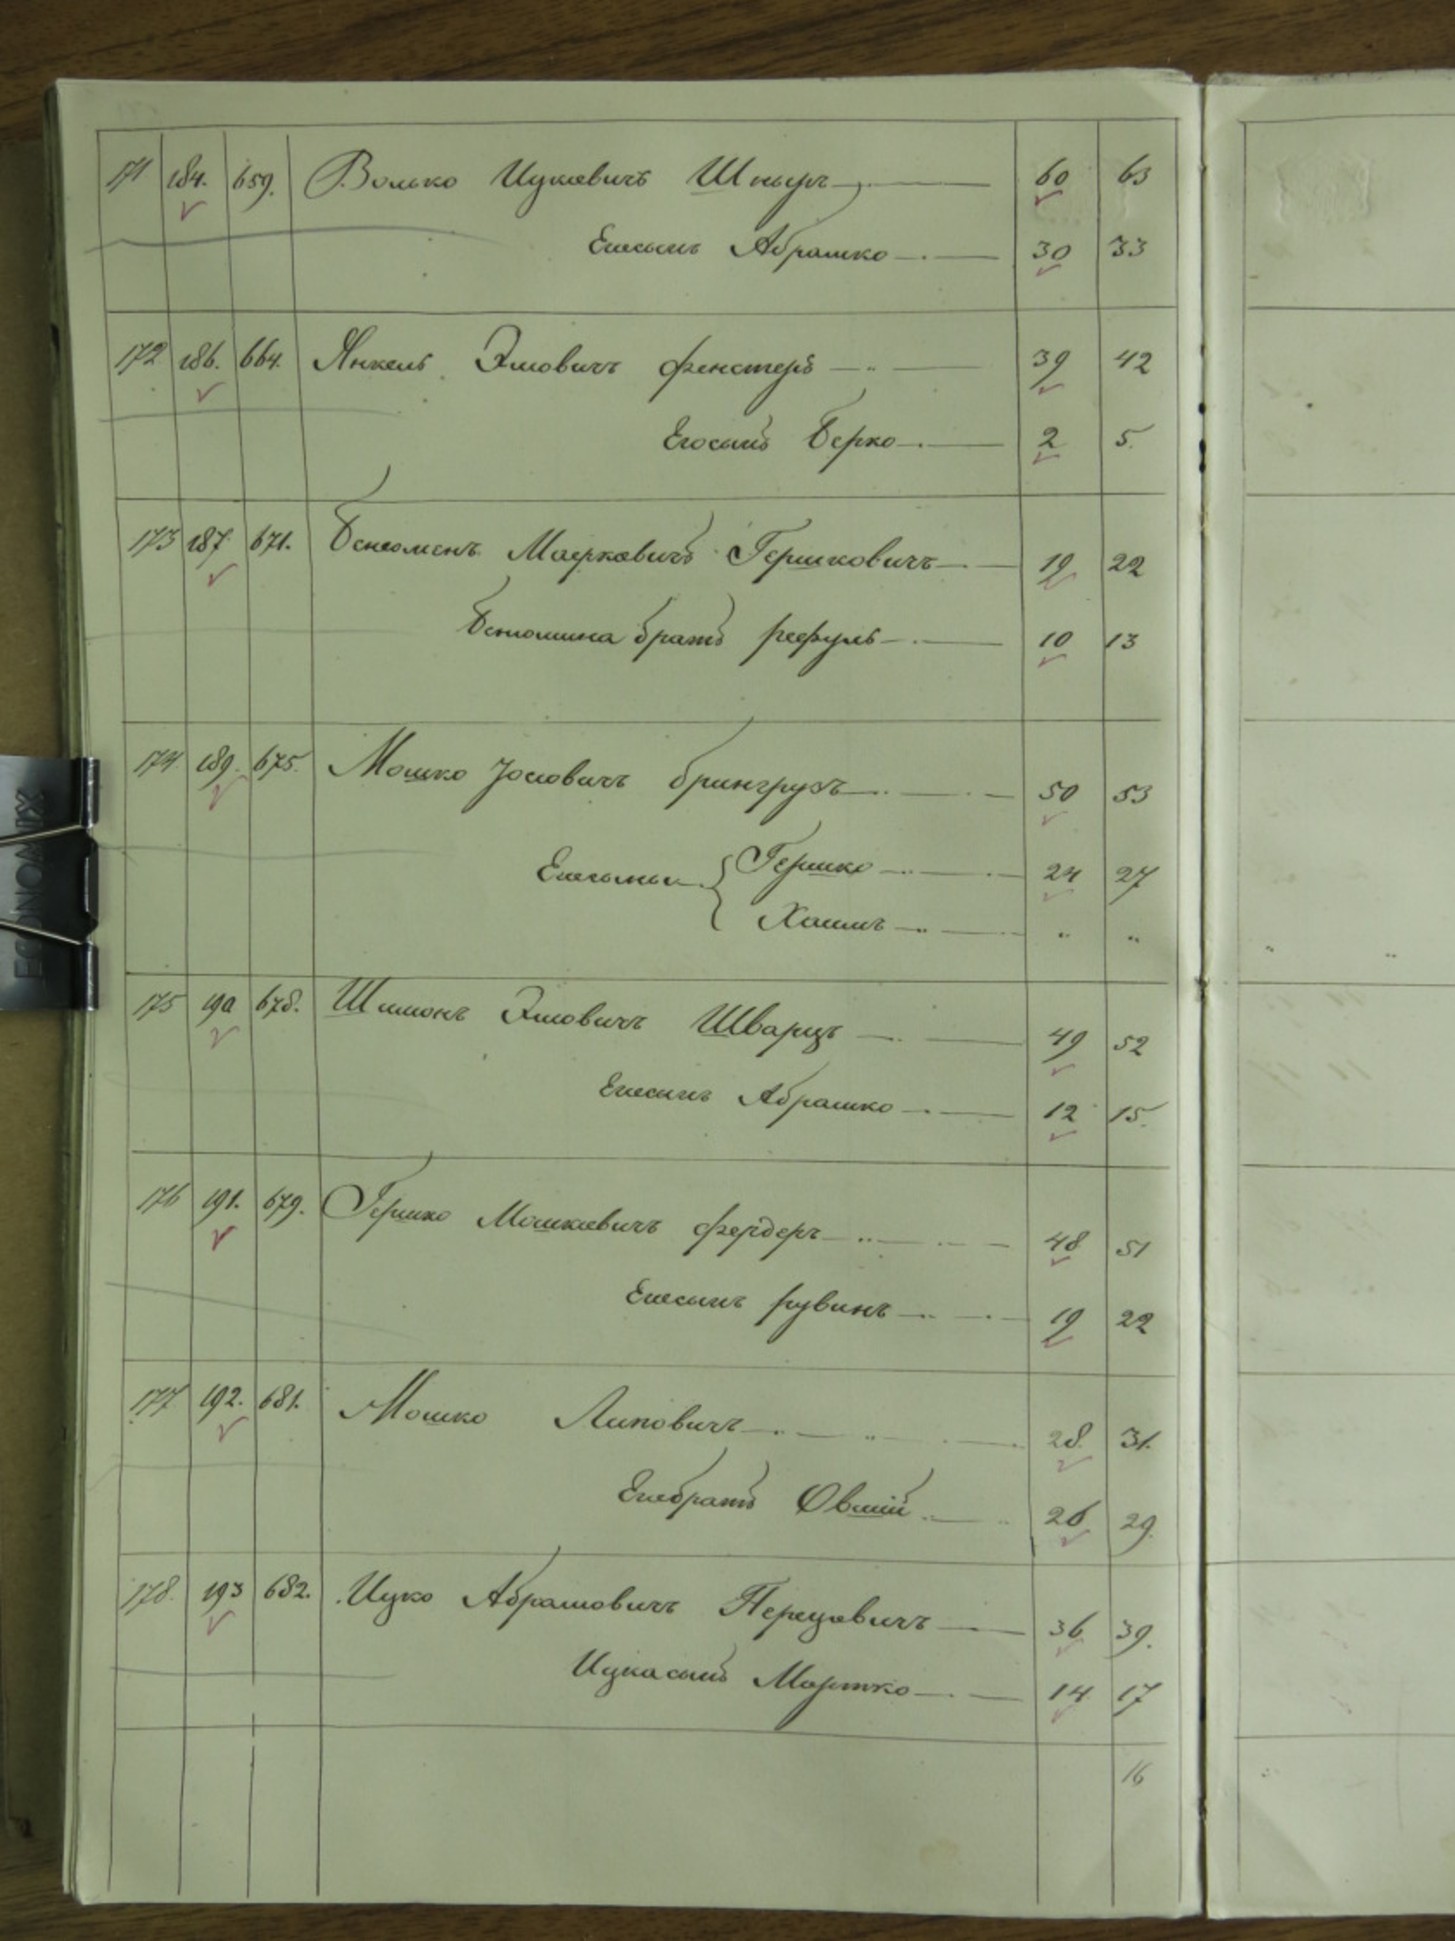 171 184. 659. Волько Ицковичъ Шныръ 60 63
Егосынъ Абрашко 30 33
172 186. 664. Янкель Эліовичъ Фенстеръ 39 42
Егосынъ Берко 2 5.
173 187 671. Беніоменъ Маерковичъ Гершковичъ 19 22
Беніомина братъ Рефуль 10 13
174 189. 675. Мошко Іосіовичъ 50 53
Егосыны Гершко 24 27
Хаимъ " "
175 190 678. Шимонъ Эліовичъ Шварцъ 49 52
Егосынъ Абрашко 12 15.
176 191. 679. Гершко Мошковичъ Фердеръ 48 51
Егосынъ Рувинъ 19 22
177 192. 681. Мошко Липовичъ 28. 31.
Егобратъ Овшій 26 29.
178. 193 682. Ицко Абрамовичъ Перецовичъ 36 39.
Ицкасынъ 14 17
16
ECONOMIX